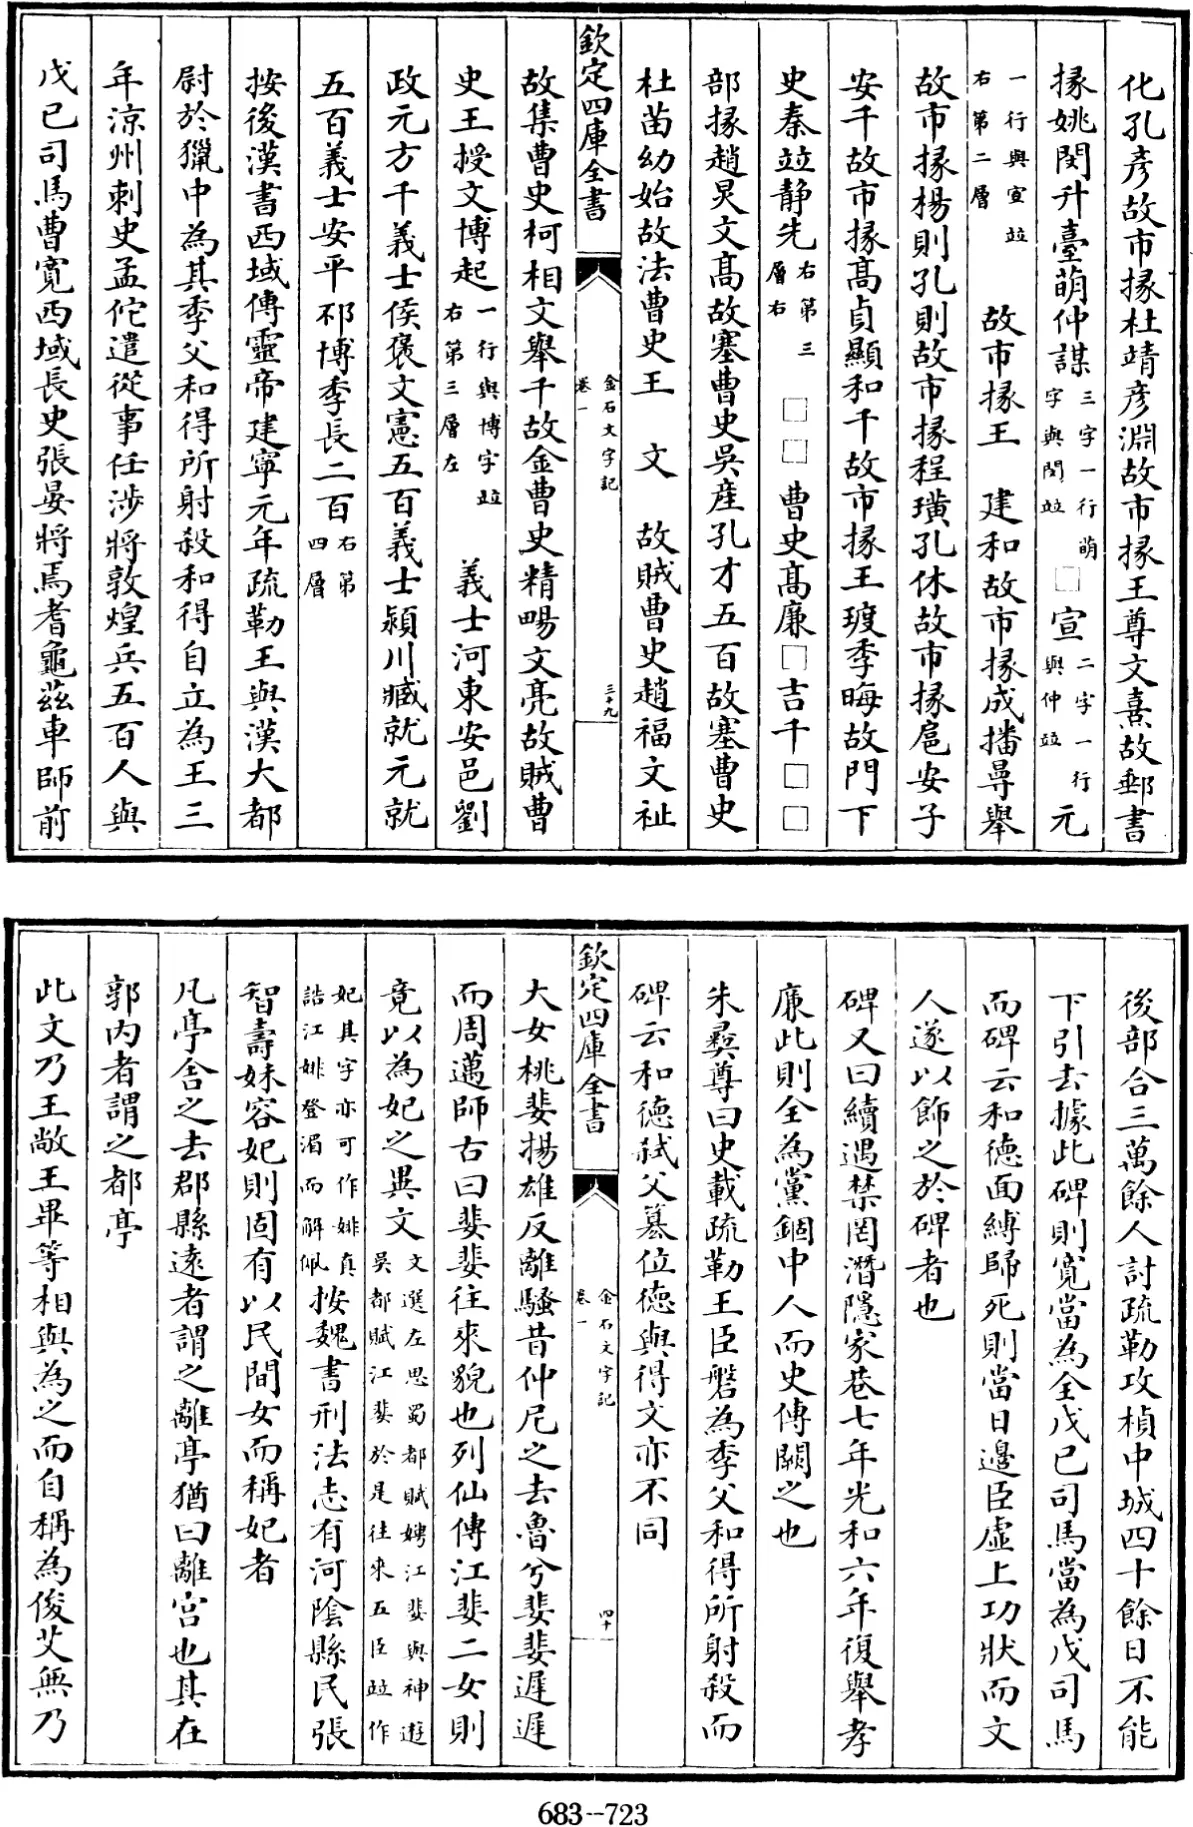 化孔彥故市掾杜靖彥淵故市掾王尊文熹故郵書
掾姚閔升臺萌仲謀三字一行萌字與閔竝□宣二字一行與仲竝元
一行與宣竝右第二層 故市掾王 建和故市掾成播㝵舉
故市掾楊則孔則故市掾程璜孔休故市掾扈安子
安千故市掾高貞顯和千故市掾王琁季晦故門下
史秦竝靜先右第三層右 □□曹史高廉□吉千□□
部掾趙炅文高故塞曹史吳產孔才五百故塞曹史
杜苗幼始故法曹史王 文 故賊曹史趙福文祉
欽定四庫全書 金石文字記 卷一 三十九
故集曹史柯相文舉千故金曹史精暘文亮故賊曹
史王授文博起一行與博字竝右第三層左 義士河東安邑劉
政元方千義士侯褒文憲五百義士潁川臧就元就
五百義士安平祁博季長二百右第四層
按後漢書西域傳靈帝建寧元年疏勒王與漢大都
尉於獵中為其季父和得所射殺和得自立為王三
年涼州刺史孟佗遣從事任涉將敦煌兵五百人與
戊已司馬曹寬西域長史張晏將焉耆龜茲車師前
後部合三萬餘人討疏勒攻楨中城四十餘日不能
下引去據此碑則寬當為全戊已司馬當為戊司馬
而碑云和德面縛歸死則當日邊臣虛上功狀而文
人遂以飾之於碑者也
碑又曰續遇禁罔潛隱家巷七年光和六年復舉孝
廉此則全為黨錮中人而史傳闕之也
朱彛尊曰史載疏勒王臣磐為季父和得所射殺而
碑云和德弑父簒位德與得文亦不同
欽定四庫全書 金石文字記 卷一 四十
大女桃婓揚雄反離騷昔仲尼之去魯兮婓婓遲遲
而周邁師古曰婓婓往來貌也列仙傳江婓二女則
竟以為妃之異文文選左思蜀都賦娉江婓與神遊吳都賦江婓於是往來五臣竝作
妃其字亦可作婔真誥江婔登湄而解佩按魏書刑法志有河陰縣民張
智壽妹容妃則固有以民間女而稱妃者
凡亭舍之去郡縣遠者謂之離亭猶曰離宮也其在
郭內者謂之都亭
此文乃王敞王畢等相與為之而自稱為俊艾無乃
683--723